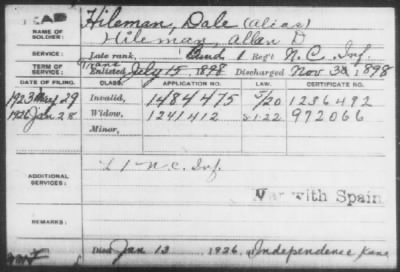 DEAD
NAME OF SOLDIER: Hileman, Dale (alias)
Hileman, Allan D
SERVICE: Late rank, Band 1 Reg't N.C. Inf.
TERM OF SERVICE: Enlisted July 15, 1898 Discharged Nov 30, 1898
DATE OF FILING. CLASS. APPLICATION NO. LAW. CERTIFICATE NO.
1923 29 Invalid, 1484475 5/20 1236492
1926 Jan 28 Widow, 1241412 1-22 972066
Minor,
ADDITIONAL SERVICES: L 1 N.C. Inf.
War with Spain
REMARKS:
Died Jan 13 1926, Independence Kans